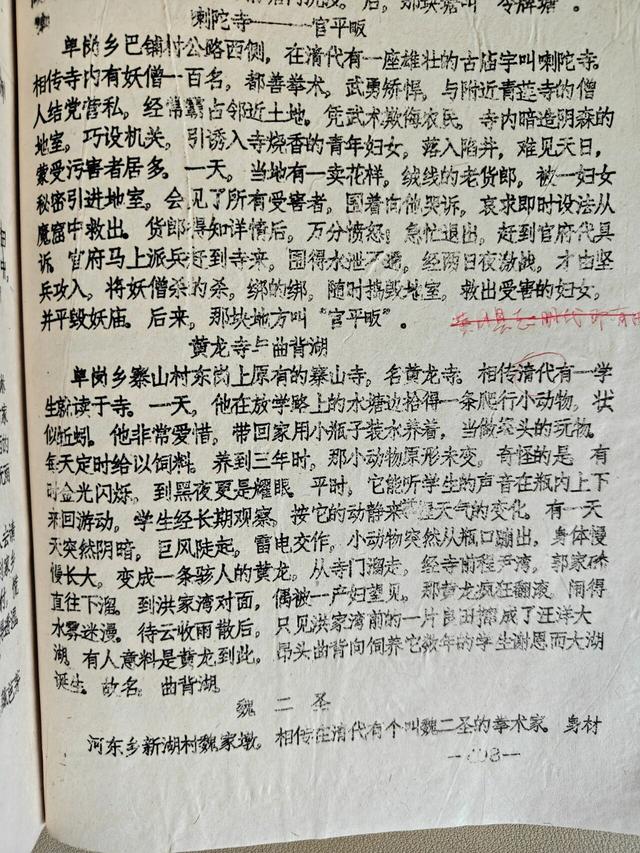 后，那块塘叫“令牌塘”。
喇陀寺————官平畈
阜岗乡巴铺村公路西侧，在清代有一座雄壮的古庙宇叫喇陀寺。
相传寺内有妖僧一百名，都善拳术，武勇矫悍，与附近青莲寺的僧
人结党营私，经常霸占邻近土地。凭武术欺侮农民，寺内暗造阴森的
地室，巧设机关，引诱入寺烧香的青年妇女，落入陷井，难见天日，
蒙受污害者居多。一天，当地有一卖花样，绒线的老货郎，被一妇女
秘密引进地室，会见了所有受害者，围着向他哭诉，哀求即时设法从
魔窟中救出。货郎得知详情后，万分愤怒，急忙退出，赶到官府代具
诉，官府马上派兵赶到寺来，围得水泄不通，经两日夜激战，才由坚
兵攻入，将妖僧杀的杀，绑的绑，随时捣毁地室，救出受害的妇女，
并平毁妖庙。后来，那块地方叫“官平畈”。
黄龙寺与曲背湖
阜岗乡寨山村东岗上原有的寨山寺，名黄龙寺。相传清代有一学
生就读于寺。一天，他在放学路上的水塘边拾得一条爬行小动物，状
似蚯蚓。他非常爱惜，带回家用小瓶子装水养着，当做案头的玩物。
每天定时给以饲料。养到三年时，那小动物原形未变，奇怪的是 有
时金光闪烁，到黑夜更是耀眼。平时，它能听学生的声音在瓶内上下
来回游动，学生经长期观察，按它的动静来 天气的变化。有一天
天突然阴暗，巨风陡起，雷电交作，小动物突然从瓶口蹦出，身体慢
慢长大，变成一条骇人的黄龙，从寺门溜走，经寺前程尹湾，郭家
直往下溜，到洪家湾对面，偶被一产妇望见，那黄龙疯狂翻滚，闹得
水雾迷漫。待云收雨散后，只见洪家湾前的一片良田擦成了汪洋大
湖，有人意料是黄龙到此，昂头曲背向饲养它数年的学生谢恩而大湖
诞生，故名 曲背湖。
魏二圣
河东乡新湖村魏家墩，相传在清代有个叫魏二圣的拳术家。身材